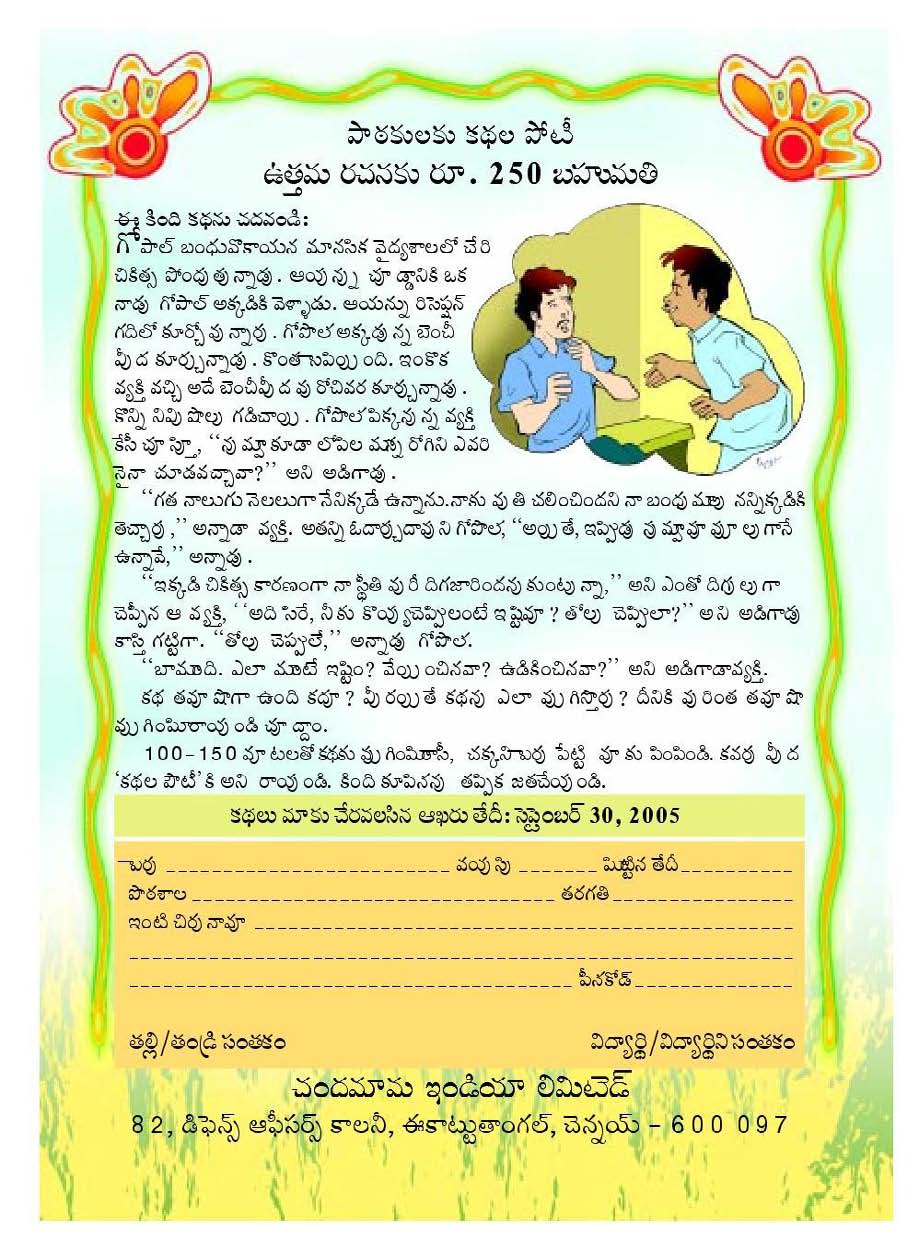 పాఠకులకు కథల పోటీ
ఉత్తమ రచనకు రూ. 250 బహుమతి
ఈ కింది కథను చదవండి:
గోపాల్ బంధువొకాయన మానసిక వైద్యశాలలో చేరి
చికిత్స పొందుతున్నాడు. ఆయన్ను చూడ్డానికి ఒక
నాడు గోపాల్ అక్కడికి వెళ్ళాడు. ఆయన్ను రిసెప్షన్
గదిలో కూర్చోమన్నారు. గోపాల్ అక్కడున్న బెంచీ
మీద కూర్చున్నాడు. కొంతసేపయింది. ఇంకొక
వ్యక్తి వచ్చి అదే బెంచీమీద మరోచివర కూర్చున్నాడు.
కొన్ని నిమిషాలు గడిచాయి. గోపాల్ పక్కనున్న వ్యక్తి
కేసి చూస్తూ, ‘‘నువ్వుకూడా లోపల వున్న రోగిని ఎవరి
నైనా చూడవచ్చావా?’’ అని అడిగాడు.
‘‘గత నాలుగు నెలలుగా నేనిక్కడే ఉన్నాను.నాకు మతి చలించిందని నా బంధువులు నన్నిక్కడికి
తెచ్చారు,’’ అన్నాడా వ్యక్తి. అతన్ని ఓదార్చుదామని గోపాల్, ‘‘అయితే, ఇప్పుడు నువ్వు మామూలుగానే
ఉన్నావే,’’ అన్నాడు.
‘‘ఇక్కడి చికిత్స కారణంగా నా స్థితి మరీ దిగజారిందనుకుంటున్నా,’’ అని ఎంతో దిగులుగా
చెప్పిన ఆ వ్యక్తి, ‘‘అది సరే, నీకు కొయ్యచెప్పులంటే ఇష్టమా? తోలు చెప్పులా?’’ అని అడిగాడు
కాస్త గట్టిగా. ‘‘తోలు చెప్పులే,’’ అన్నాడు గోపాల్.
‘‘బావుంది. ఎలా వుంటే ఇష్టం? వేయించినవా? ఉడికించినవా?’’ అని అడిగాడావ్యక్తి.
కథ తమాషాగా ఉంది కదూ? మీరయితే కథను ఎలా ముగిస్తారు? దీనికి మరింత తమాషా
ముగింపురాయండి చూద్దాం.
100-150 మాటలతో కథకు ముగింపురాసి, చక్కనిపేరు పెట్టి మాకు పంపండి. కవరు మీద
‘కథల పోటీ’కి అని రాయండి. కింది కూపన్ను తప్పక జతచేయండి.
కథలు మాకు చేరవలసిన ఆఖరు తేదీ: సెప్టెంబర్ 30, 2005
పేరు _________________________ వయసు _______ పుట్టిన తేదీ__________
పాఠశాల ________________________________ తరగతి________________
ఇంటి చిరునామా ________________________________________________
___________________________________________________________
_______________________________________ పిన్‌కోడ్______________
తల్లి/తండ్రి సంతకం విద్యార్థి/విద్యార్థిని సంతకం
చందమామ ఇండియా లిమిటెడ్
82, డిఫెన్స్ ఆఫీసర్స్ కాలనీ, ఈకాట్టుతాంగల్, చెన్నయ్ – 600 097